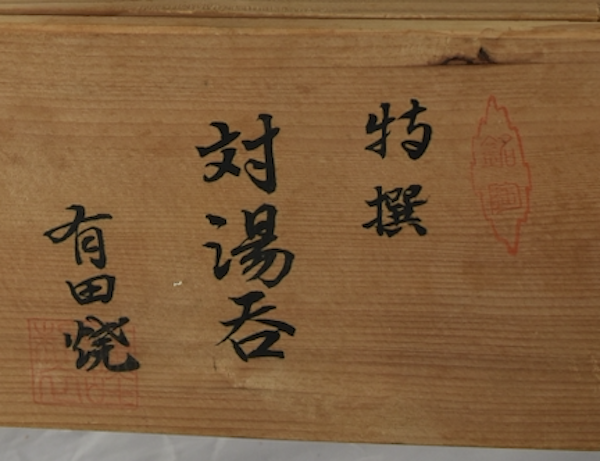 銘陶
特撰
対湯呑
有田焼